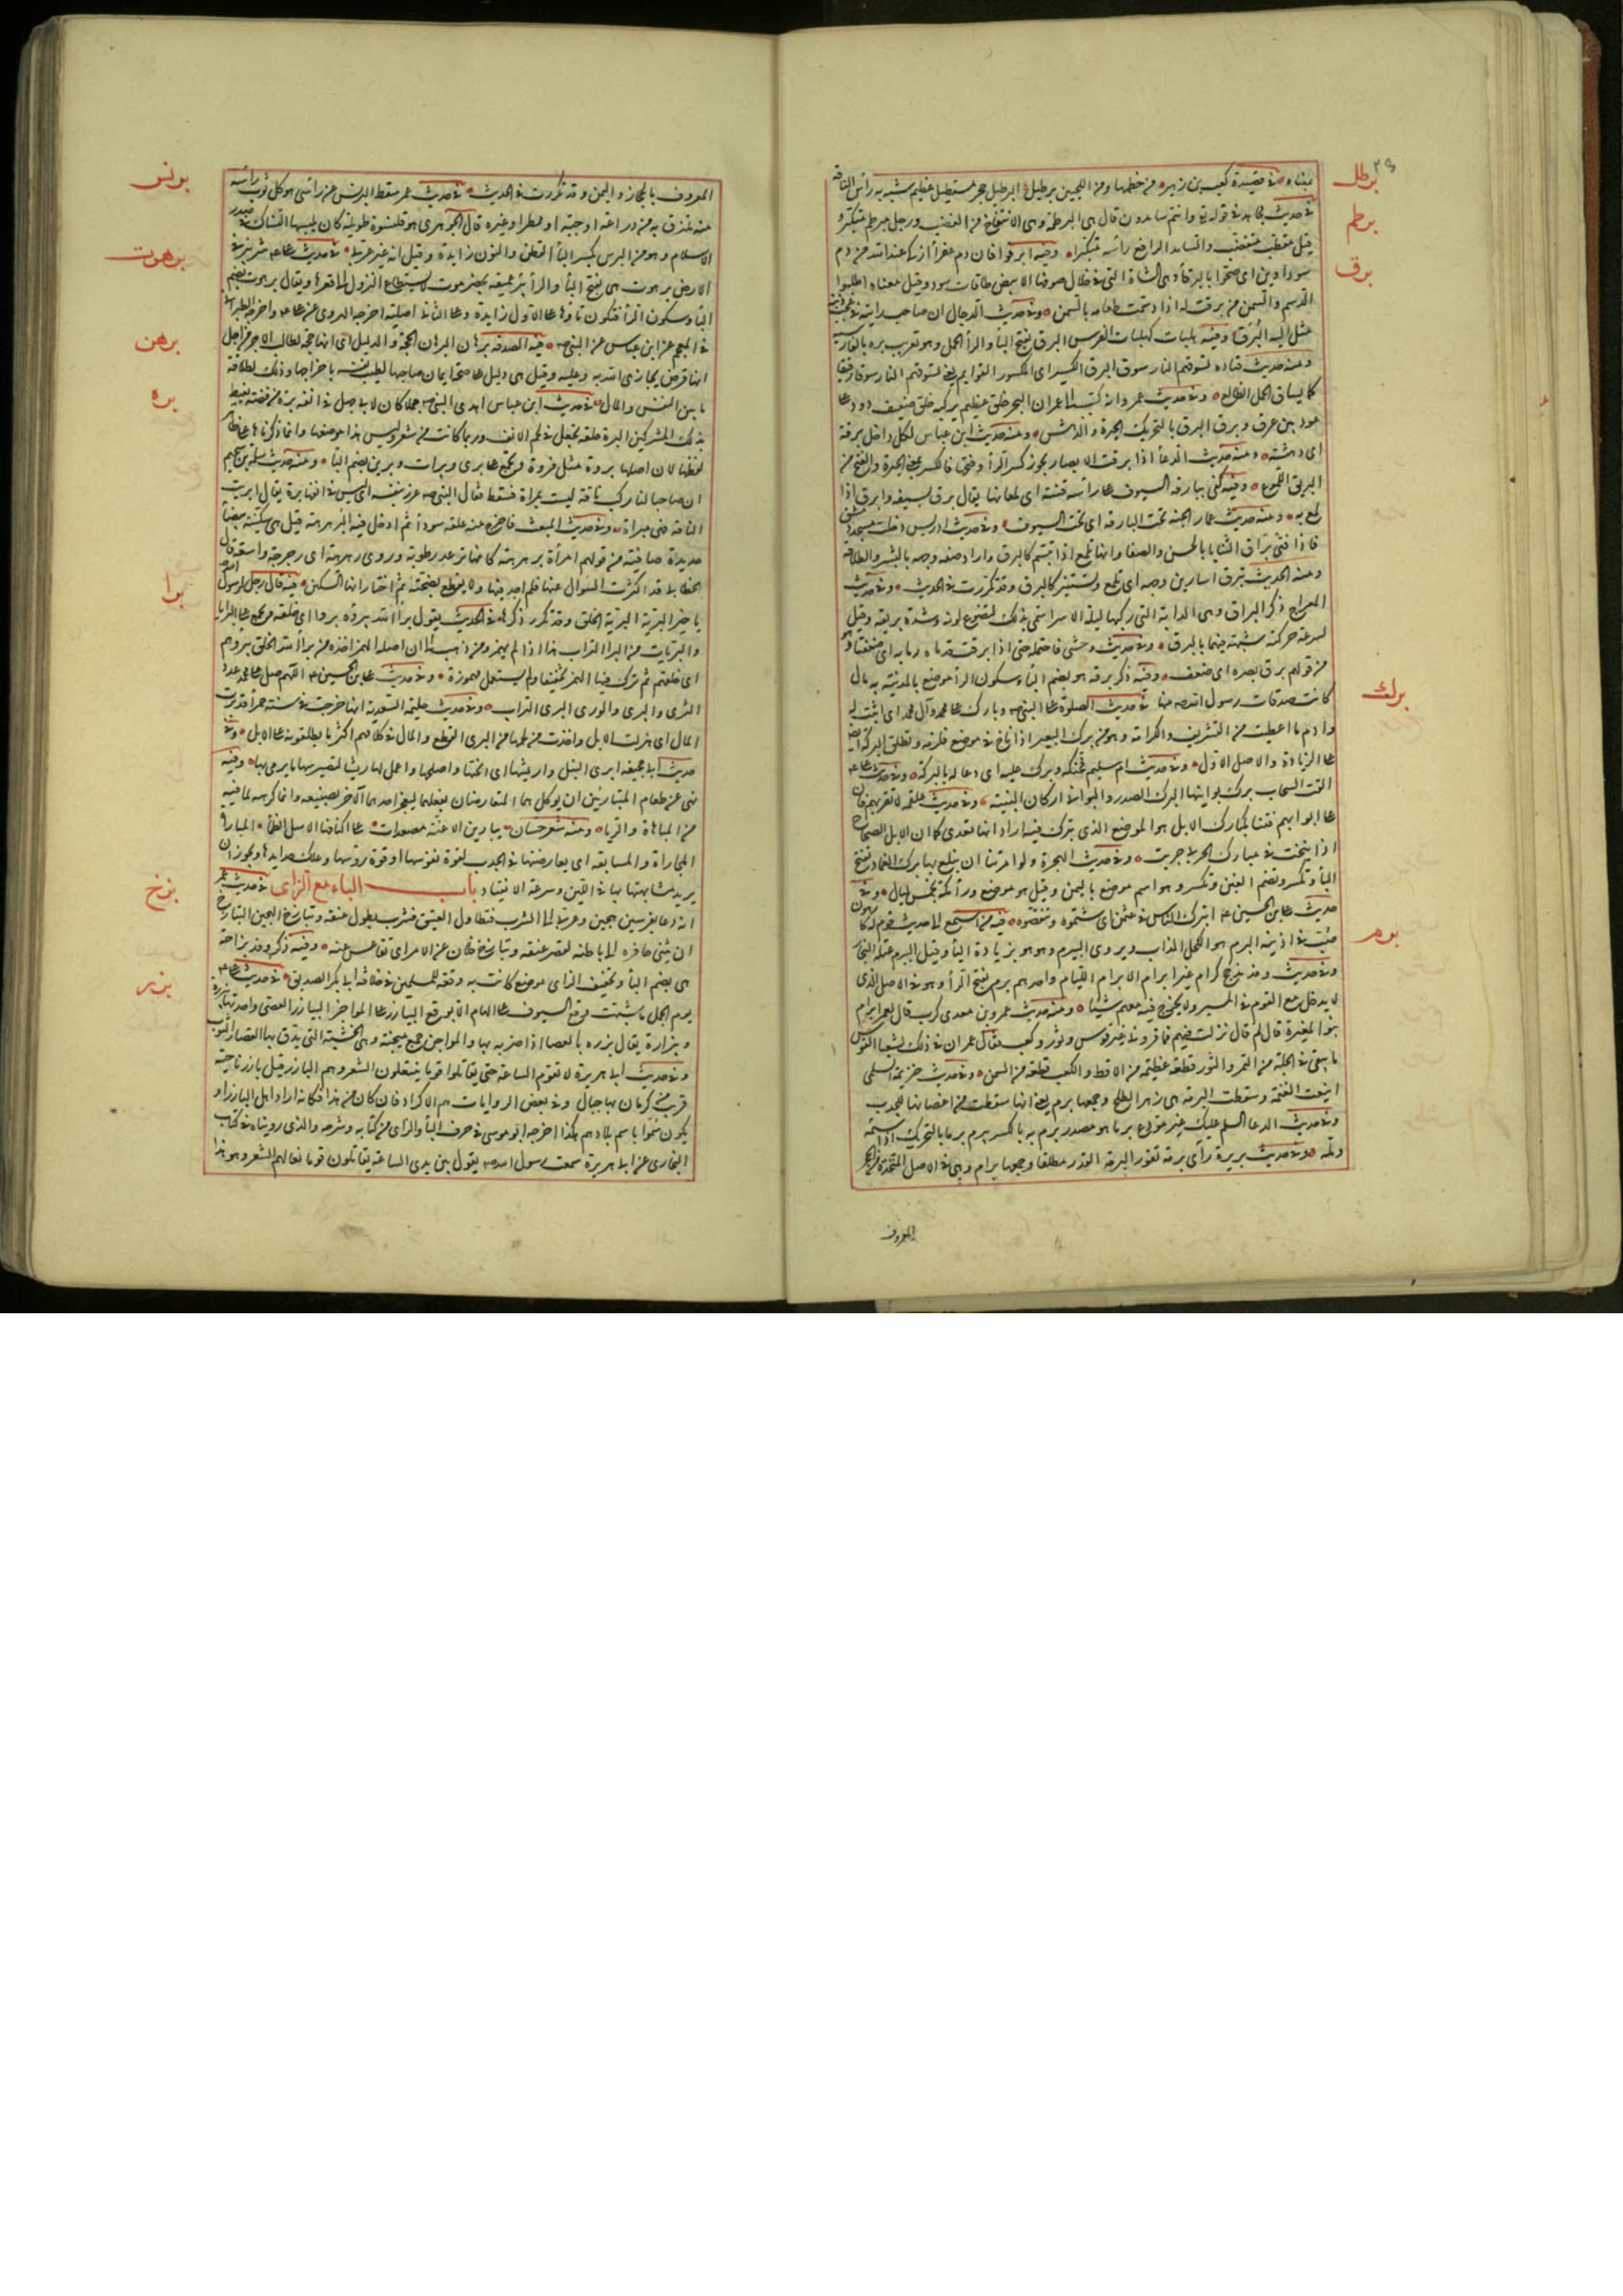 ٢٩
برطل
برطم
برق
برك
برم
عيناه وفي قصيدة كعب بن زهير من خطمها ومن اللحيين برطيل البرطيل حجر مستطيل عظيم شبه به رأس الناقة
في حديث مجاهد في قوله وانتم سامدون قال هي البرطمة وهي الانتفاخ من الغضب ورجل مبرطم متكبر و
قيل مقطب متغضب والسامد الرافع رأسه تكبرا وفيه ابرقوا فان دم عفرا ازكى عند الله من دم
سوداوين اى ضحوا بالبرقا وهى الشاة التى فى خلال صوفها الابيض طاقات سود وقيل معناه اطلبوا
الدسم والسمن من برقت له اذا دسمت طعامه بالسمن وفى حديث الدجال ان صاحب رايته فى عجب ذنبه
مثل الية البرق وفيه هلبات كهلبات الفرس البرق بفتح البا والرا الحمل وهو تعريب بره بالفارسية
ومنه حديث قتادة تسوقهم النار سوق البرق الكسير اى المكسور القوايم يعنى تسوقهم النار سوقا رفيقا
كما يساق الحمل الظالع وفى حديث عمرو انه كتب الى عمر ان البحر خلق عظيم يركبه خلق ضعيف دود على
عود بين غرق وبرق البرق بالتحريك الحيرة والدهش ومنه حديث ابن عباس لكل داخل برقة
اى دهشة ومنه حديث الدعا اذا برقت الابصار يجوز كسر الرا وفتحها فالكسر بمعنى الحيرة والفتح من
البريق اللموع وفيه كفى ببارقة السيوف على رأسه فتنة اى لمعانها يقال برق بسيفه وابرق اذا
لمع به ومنه حديث عمار الجنة تحت البارقة اى تحت السيوف وفى حديث ادريس دخلت مسجد دمشق
فاذا فتى براق الثنايا بالحسن والصفا وانها تلمع اذا تبسم كالبرق واراد صفة وجهه بالبشر والطلاقة
ومنه الحديث تبرق اسارير وجهه اى تلمع وتستنير كالبرق وقد تكررت فى الحديث وفى حديث
المعراج ذكر البراق وهى الدابة التى ركبها ليلة الاسرا سمى بذلك لنصوع لونه وشدة بريقه وقيل
لسرعة حركته شبهه فيهما بالبرق وفى حديث وحشى فاحتمله حتى اذا برقت قدماه رمى به اى ضعفتا وهو
من قولهم برق بصره اى ضعف وفيه ذكر برقة هو بضم البا وسكون الرا موضع بالمدينة به مال
كانت صدقات رسول الله منها فى حديث الصلوة على النبى وبارك على محمد وآل محمد اى اثبت له
وادم ما اعطيت من التشريف والكرامة وهو من برك البعير اذا ناخ فى موضع فلزمه وتطلق البركة ايضا
على الزيادة والاصل الاول وفى حديث ام سليم فحنكه وبرك عليه اى دعا له بالبركة وفى حديث على
القت السحاب برك بوانيها البرك الصدر والبوانى اركان البنية وفى حديث علقمة لا تقربهم فان
على ابوابهم فتنا كمبارك الابل هو الموضع الذى تبرك فيه اراد انها تعدى كما ان الابل الصحاح
اذا انيخت فى مبارك الجربى جربت وفى حديث الهجرة ولو امرتنا ان نبلغ بها برك الغماد تفتح
البا وتكسر وتضم الغين وتكسر وهو اسم موضع باليمن وقيل هو موضع ورا مكة بخمس ليال وفى
حديث على بن الحسين ابترك الناس فى عثمان اى شتموه وتنقصوه فيه من استمع الى حديث قوم له كارهون
صب فى اذنيه البرم هو الكحل المذاب ويروى البيرم وهو هو بزيادة اليا وقيل البيرم عتلة النجار
وفى حديث وفد مذحج كرام غير ابرام الابرام الليام واحدهم برم بفتح الرا وهو فى الاصل الذى
لا يدخل مع القوم فى الميسر ولا يخرج فيه معهم شيئا ومنه حديث عمرو بن معدى كرب قال لعمر ابرام
بنو المغيرة قال لم قال نزلت فيهم فما قرونى غير قوس وثور وكعب فقال عمر ان فى ذلك لشبعا القوس
ما يبقى فى الجلة من التمر والثور قطعة عظيمة من الاقط والكعب قطعة من السمن وفى حديث خزيمة السلمى
اينعت العنمة وسقطت البرمة هى زهر الطلح وجمعها برم يعنى انها سقطت من اغصانها للجدب
وفى حديث الدعا السلم عليك غير مودع برما هو مصدر برم به بالكسر يبرم برما بالتحريك اذا سئمه
ومله وفى حديث بريرة رأى برمة تفور البرمة القدر مطلقا وجمعها برام وهى فى الاصل المتخذة من الحجر
المعروف
برنس
برهوت
برهن
بره
برا
بزخ
بزر
المعروف بالحجاز واليمن وقد تكررت فى الحديث فى حديث عمر سقط البرنس عن رأسى هو كل ثوب رأسه
منه ملتزق به من دراعة او جبة او ممطر او غيره قال الجوهرى هو قلنسوة طويلة كان يلبسها النساك فى صدر
الاسلام وهو من البرس بكسر البا القطن والنون زايدة وقيل انه غير عربى فى حديث على شر بئر فى
الارض برهوت هى بفتح البا والرا بئر عميقة بحضرموت لا يستطاع النزول الى قعرها ويقال برهوت بضم
البا وسكون الرا فتكون تاؤها على الاول زايدة وعلى الثانى اصلية اخرجه الهروى عن على واخرجه الطبرانى
فى المعجم عن ابن عباس عن النبى فيه الصدقة برهان البرهان الحجة والدليل اى انها حجة لطالب الاجر من اجل
انها فرض يجازى الله به وعليه وقيل هى دليل على صحة ايمان صاحبها لطيب نفسه باخراجها وذلك لعلاقة
ما بين النفس والمال فى حديث ابن عباس اهدى النبى جملا كان لابى جهل فى انفه برة من فضة يغيظ
بذلك المشركين البرة حلقة تجعل فى لحم الانف وربما كانت من شعر وليس هذا موضعها وانما ذكرناها على ظاهر
لفظها لان اصلها بروة مثل فروة وتجمع على برى وبرات وبرين بضم البا ومنه حديث سلمة بن سحيم
ان صاحبا لنا ركب ناقة ليست بمبراة فسقط فقال النبى غرر بنفسه اى ليس فى انفها برة يقال ابريت
الناقة فهى مبراة وفى حديث المبعث فاخرج منه علقة سودا ثم ادخل فيه البرهرهة قيل هى سكينة بيضا
جديدة صافية من قولهم امرأة برهرهة كانها ترعد رطوبة ويروى رهرهة اى رحرحة واسعة قال
الخطابى قد اكثرت السوال عنها فلم اجد فيها قولا يقطع بصحته ثم اختار انها السكين فيه قال رجل لرسول الله
يا خير البرية البرية الخلق وقد تكرر ذكرها فى الحديث يقول برا الله يبرؤه بروا اى خلقه وتجمع على البرايا
والبريات من البرا التراب هذا اذا لم يهمز ومن ذهب الى ان اصله الهمز اخذه من برا الله الخلق يبروهم
اى خلقهم ثم ترك فيها الهمز تخفيفا ولم يستعمل مهموزة وفى حديث على بن الحسين اللهم صل على محمد عدد
الثرى والبرى والورى البرى التراب وفى حديث حليمة السعدية انها خرجت فى سنة حمرا قد برت
المال اى هزلت الابل واخذت من لحمها من البرى القطع والمال فى كلامهم اكثر ما يطلقونه على الابل وفى
حديث ابى جحيفة ابرى النبل واريشها اى انحتها واصلحها واعمل لها ريشا لتصير سهاما يرمى بها وفيه
نهى عن طعام المتباريين ان يوكل هما المتعارضان بفعلهما ليعجز احدهما الآخر بصنيعه وانما كرهه لما فيه
من المباهاة والريا ومنه شعر حسان يبارين الاعنة مصعدات على اكتافها الاسل الظما المباراة
المجاراة والمسابقة اى يعارضنها فى الجذب لقوة نفوسها او قوة رؤسها وعلك حدايدها ويجوز ان
يريد مشابهتها لها فى اللين وسرعة الانقياد باب الباء مع الزاى فى حديث عمر
انه دعا بفرسين هجين وعربى الى الشرب فتطاول العتيق فشرب بطول عنقه وتبازخ الهجين التبازخ
ان يثنى حافره الى باطنه لقصر عنقه وتبازخ فلان عن الامر اى تقاعس عنه وفيه ذكر وفد بزاخة
هى بضم البا وتخفيف الزاى موضع كانت به وقعة للمسلمين فى خلافة ابى بكر الصديق فى حديث على
يوم الجمل ما شبهت وقع السيوف على الهام الا بوقع البيازر على المواجن البيازر العصى واحدتها بيزرة
وبيزارة يقال بزره بالعصا اذا ضربه بها والمواجن جمع ميجنة وهى الخشبة التى يدق بها القصار الثوب
وفى حديث ابى هريرة لا تقوم الساعة حتى يقاتلوا قوما ينتعلون الشعر وهم البازر قيل بازر ناحية
قريبة من كرمان بها جبال وفى بعض الروايات هم الاكراد فان كان من هذا فكانه اراد اهل البازر او
يكون سموا باسم بلادهم هكذا اخرجه ابو موسى فى حرف البا والزاى من كتابه وشرحه والذى رويناه فى كتاب
البخارى عن ابى هريرة سمعت رسول الله يقول بين يدى الساعة يقاتلون قوما نعالهم الشعر وهو هذا